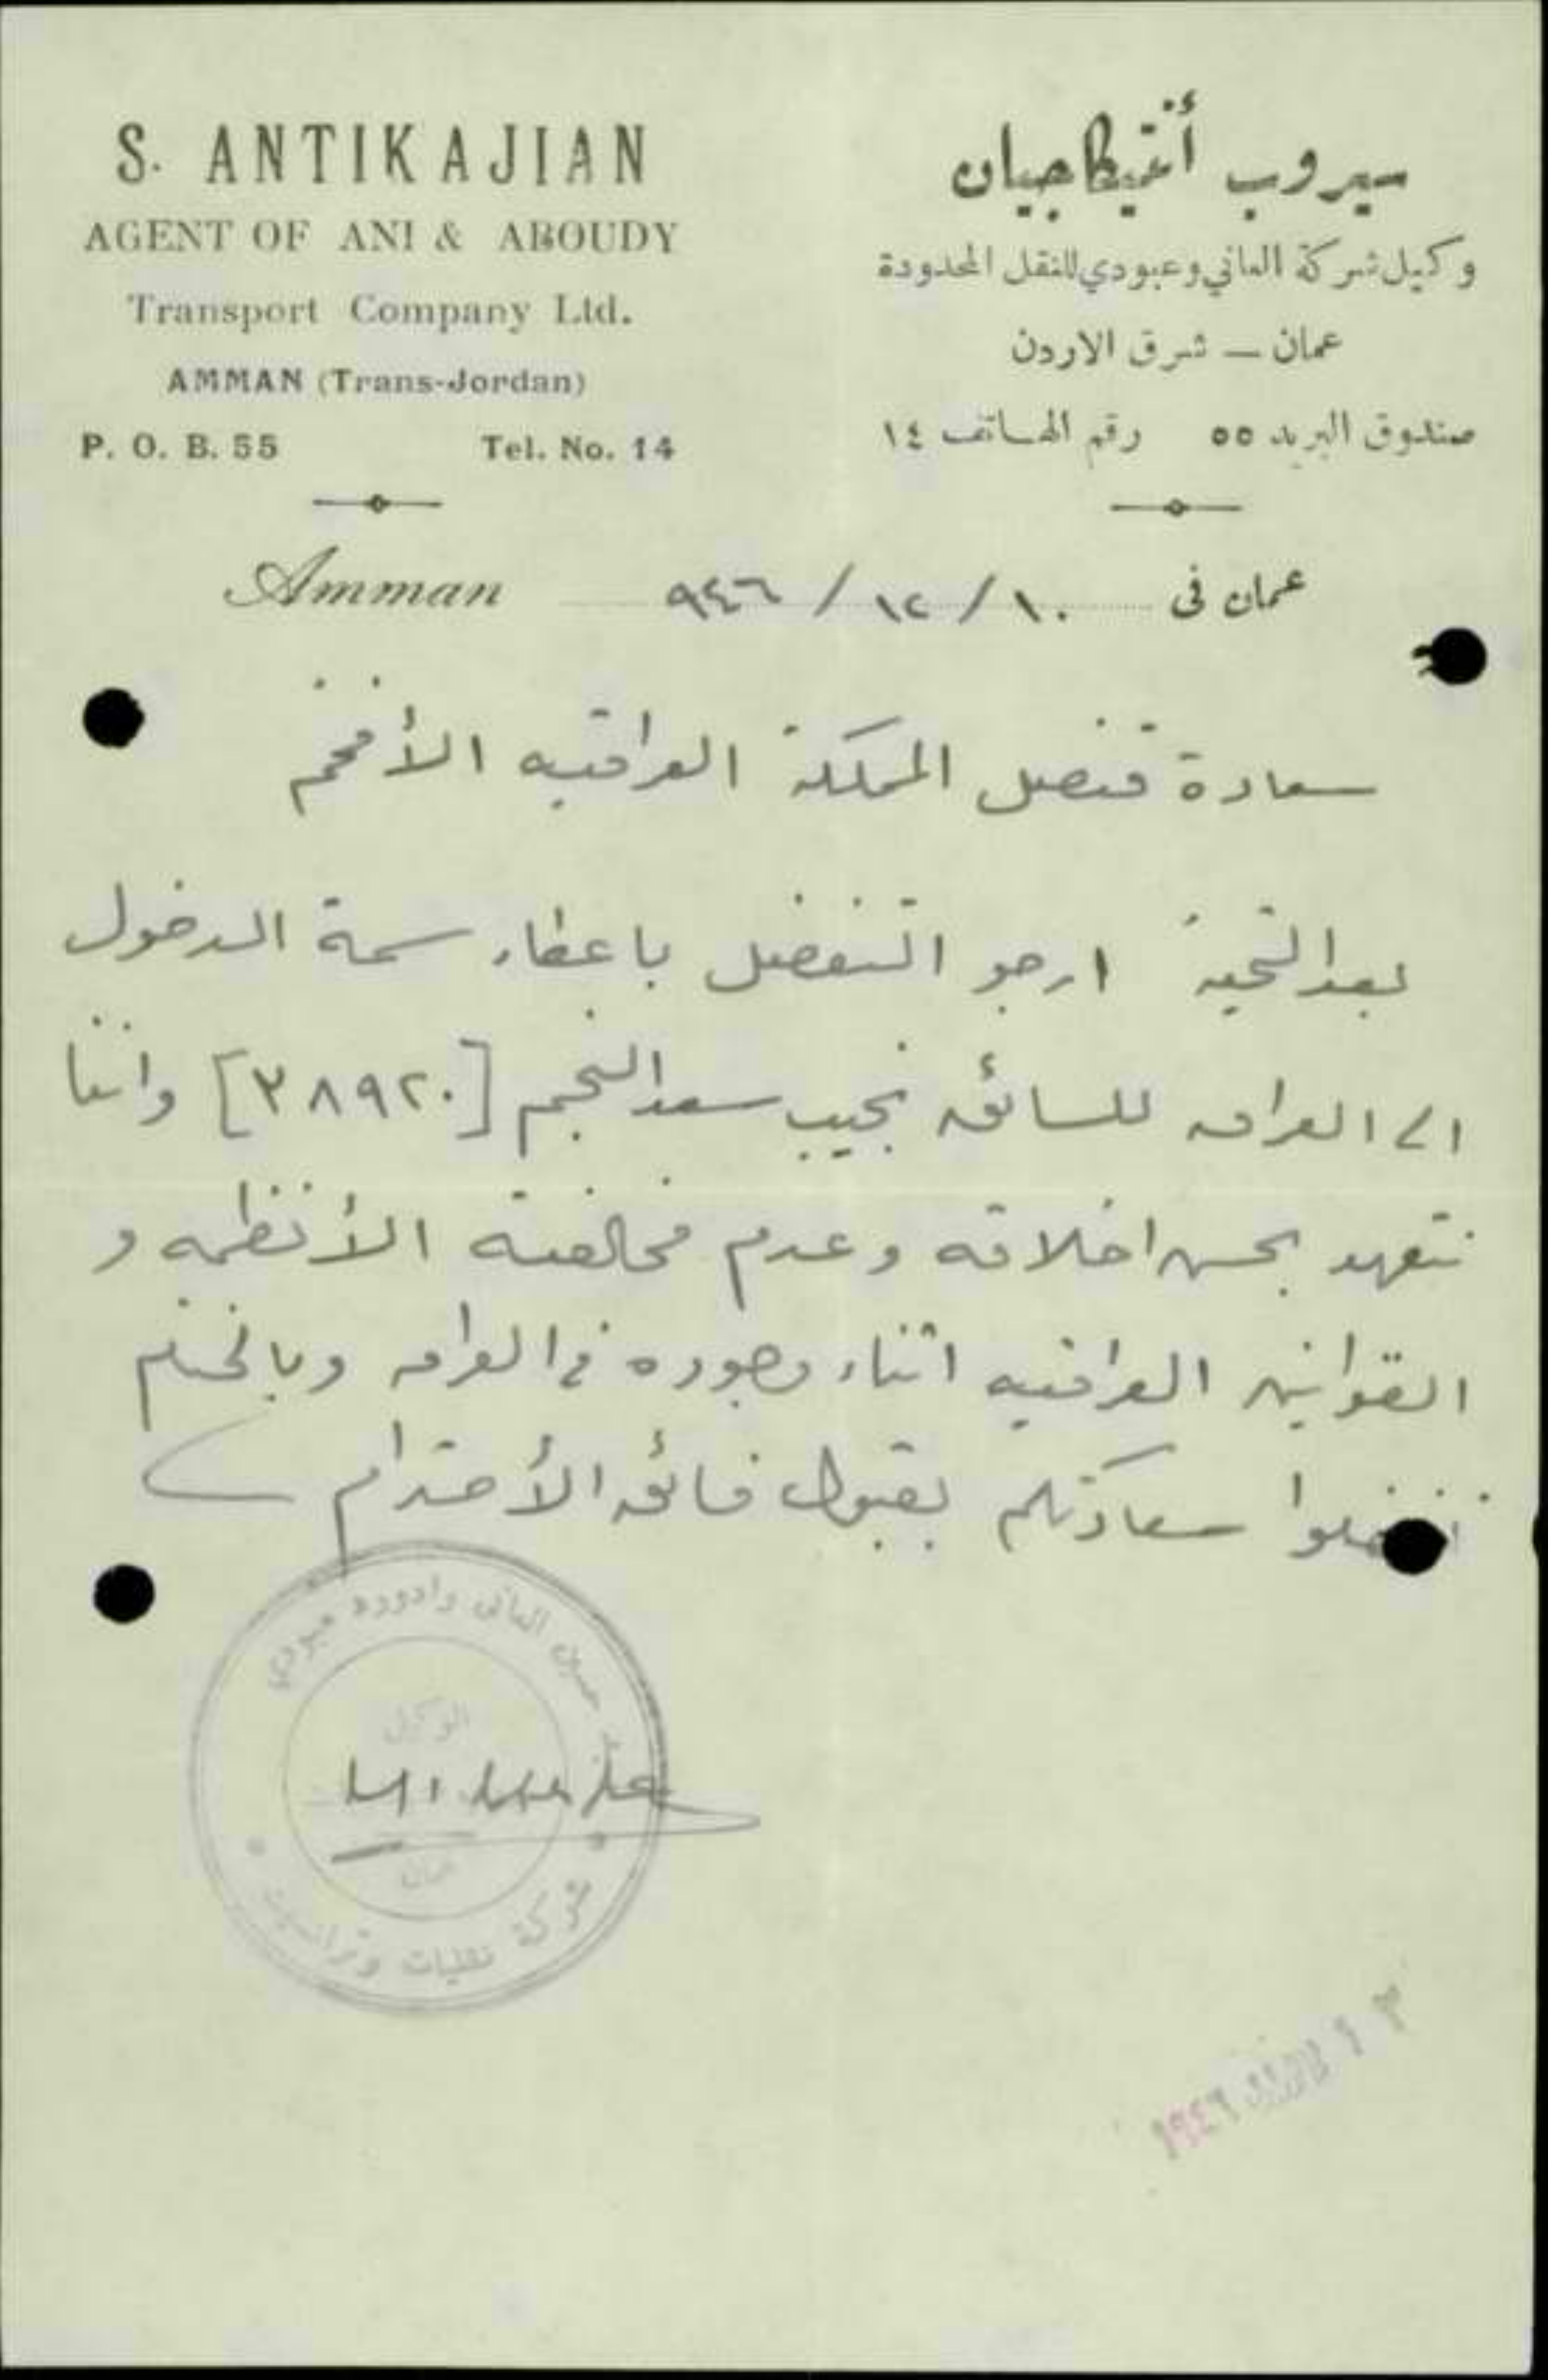 S. ANTIKAJIAN
AGENT OF ANI & ABOUDY
Transport Company Ltd.
AMMAN (Trans-Jordan)
P. O. B. 55 Tel. No. 14
سيروب أنتيكاجيان
وكيل شركة العاني وعبودي للنقل المحدودة
عمان — شرق الاردن
صندوق البريد ٥٥ رقم الهاتف ١٤
Amman ١٠/١٢/٩٤٦ عمان فى
سعادة قنصل المملكة العراقيه الأفخم
بعد التحية ارجو التفضل باعطاء سمة الدخول
الى العراق للسائق نجيب سعد النجم [٣٨٩٢٠] واننا
نتعهد بحسن اخلاقه وعدم مخالفته الأنظمه و
القوانين العراقيه اثناء وجوده في العراق وبالختام
تفضلوا سعادتكم بقبول فائق الأحترام
حسين العاني وادوره عبودي
الوكيل
عمان
شركة نقليات وترانسيت
١٩٤٦